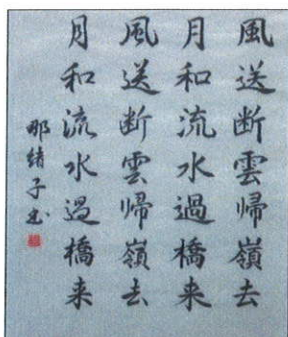 風送断雲帰嶺去
月和流水過橋来
風送断雲帰嶺去
月和流水過橋来
那緒子書